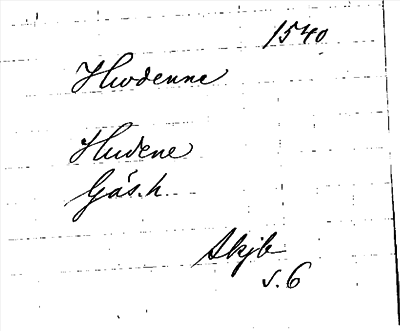 1540
Hwdenne
Hudene
Gäs. h.
Skjb
s. 6